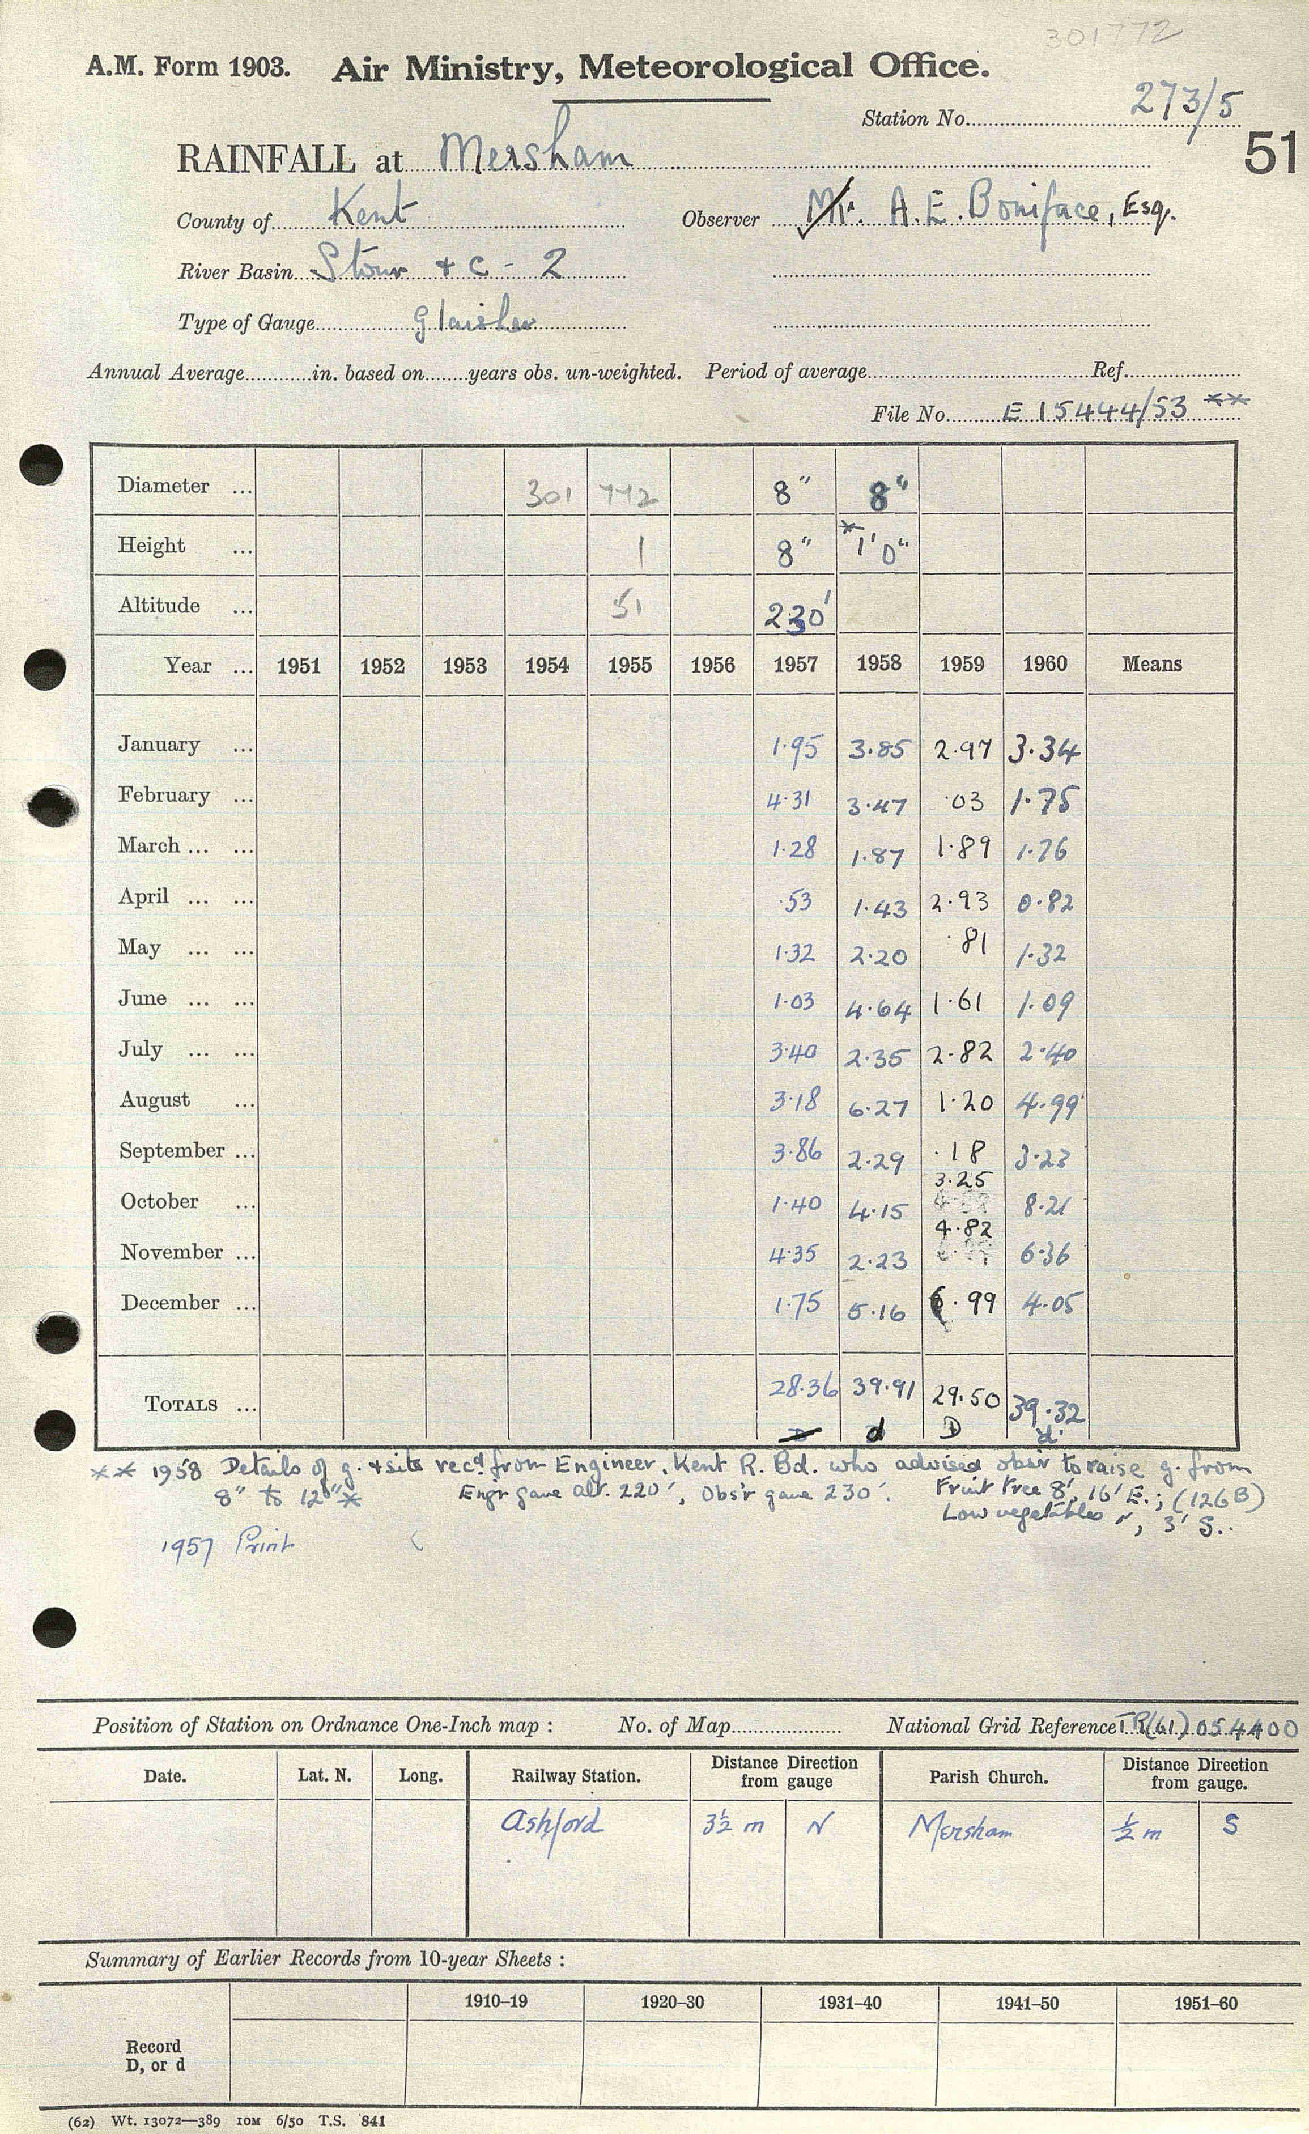 301772
A.M. Form 1903. Air Ministry, Meteorological Office.
Station No. 273/5
51
RAINFALL at Mersham
County of Kent Observer Mr. A.E. Boniface, Esq.
River Basin Stour + c - 2
Type of Gauge Glaisher
Annual Average in. based on years obs. un-weighted. Period of average Ref.
File No. E 15444/53 **
Diameter ... 301 772 8" 8"
Height ... 1 8" * 1'0"
Altitude ... 51 230'
Year ... 1951 1952 1953 1954 1955 1956 1957 1958 1959 1960 Means
January ... 1.95 3.85 2.97 3.34
February ... 4.31 3.47 .03 1.75
March ... ... 1.28 1.87 1.89 1.76
April ... ... .53 1.43 2.93 0.82
May ... ... 1.32 2.20 .81 1.32
June ... ... 1.03 4.64 1.61 1.09
July ... ... 3.40 2.35 2.82 2.40
August ... 3.18 6.27 1.20 4.99
September ... 3.86 2.29 .18 3.23
October ... 1.40 4.15 3.25 8.21
November ... 4.35 2.23 4.82 6.36
December ... 1.75 5.16 6.99 4.05
TOTALS ... 28.36 39.91 29.50 39.32
d D d
** 1958 Details of g. & site recd from Engineer, Kent R. Bd. who advised obsr to raise g. from
8" to 12" * Engr gave alt. 220', Obs'r gave 230'. Fruit tree 8', 16' E.; (126B)
Low vegetables , 3' S.
1957 Print
Position of Station on Ordnance One-Inch map : No. of Map National Grid Reference TR(61) 054400
Date. Lat. N. Long. Railway Station. Distance from gauge Direction Parish Church. Distance from gauge. Direction
Ashford 3½ m N Mersham ½ m S
Summary of Earlier Records from 10-year Sheets :
1910–19 1920–30 1931–40 1941–50 1951–60
Record
D, or d
(62) Wt. 13072—389 10M 6/50 T.S. 841